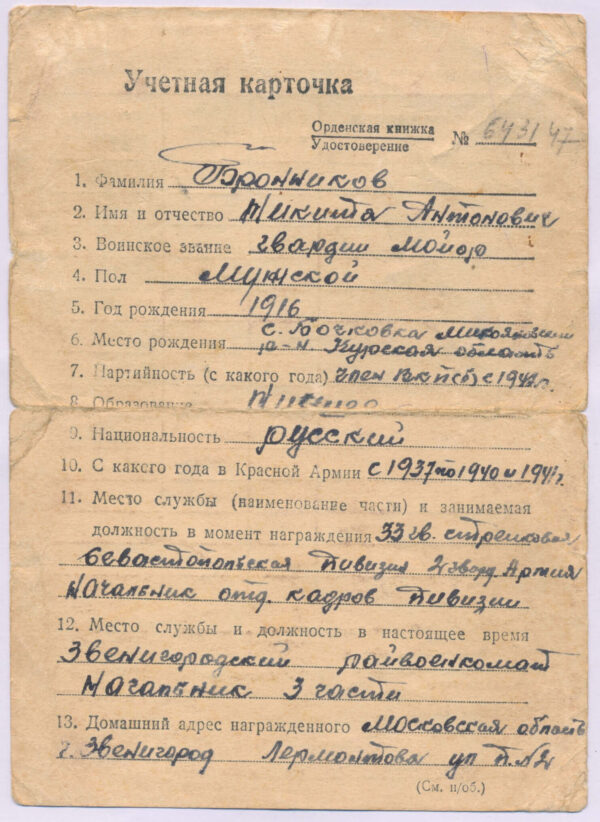 Учетная карточка
Орденская книжка
Удостоверение № 643147
1. Фамилия Бронников
2. Имя и отчество Никита Антонович
3. Воинское звание гвардии майор
4. Пол Мужской
5. Год рождения 1916
6. Место рождения с. Бочковка
р-н Курская область
7. Партийность (с какого года) член ВКП(б) с
8. Образование
9. Национальность русский
10. С какого года в Красной Армии с 1937 по 1940 и 1941 г.
11. Место службы (наименование части) и занимаемая
должность в момент награждения 33 гв. стрелковая
Севастопольская дивизия 2 гвард. Армия
Начальник отд. кадров дивизии
12. Место службы и должность в настоящее время
Звенигородский райвоенкомат
Начальник 3 части
13. Домашний адрес награжденного Московская область
г. Звенигород Лермонтова ул д. №2
(См. н/об.)